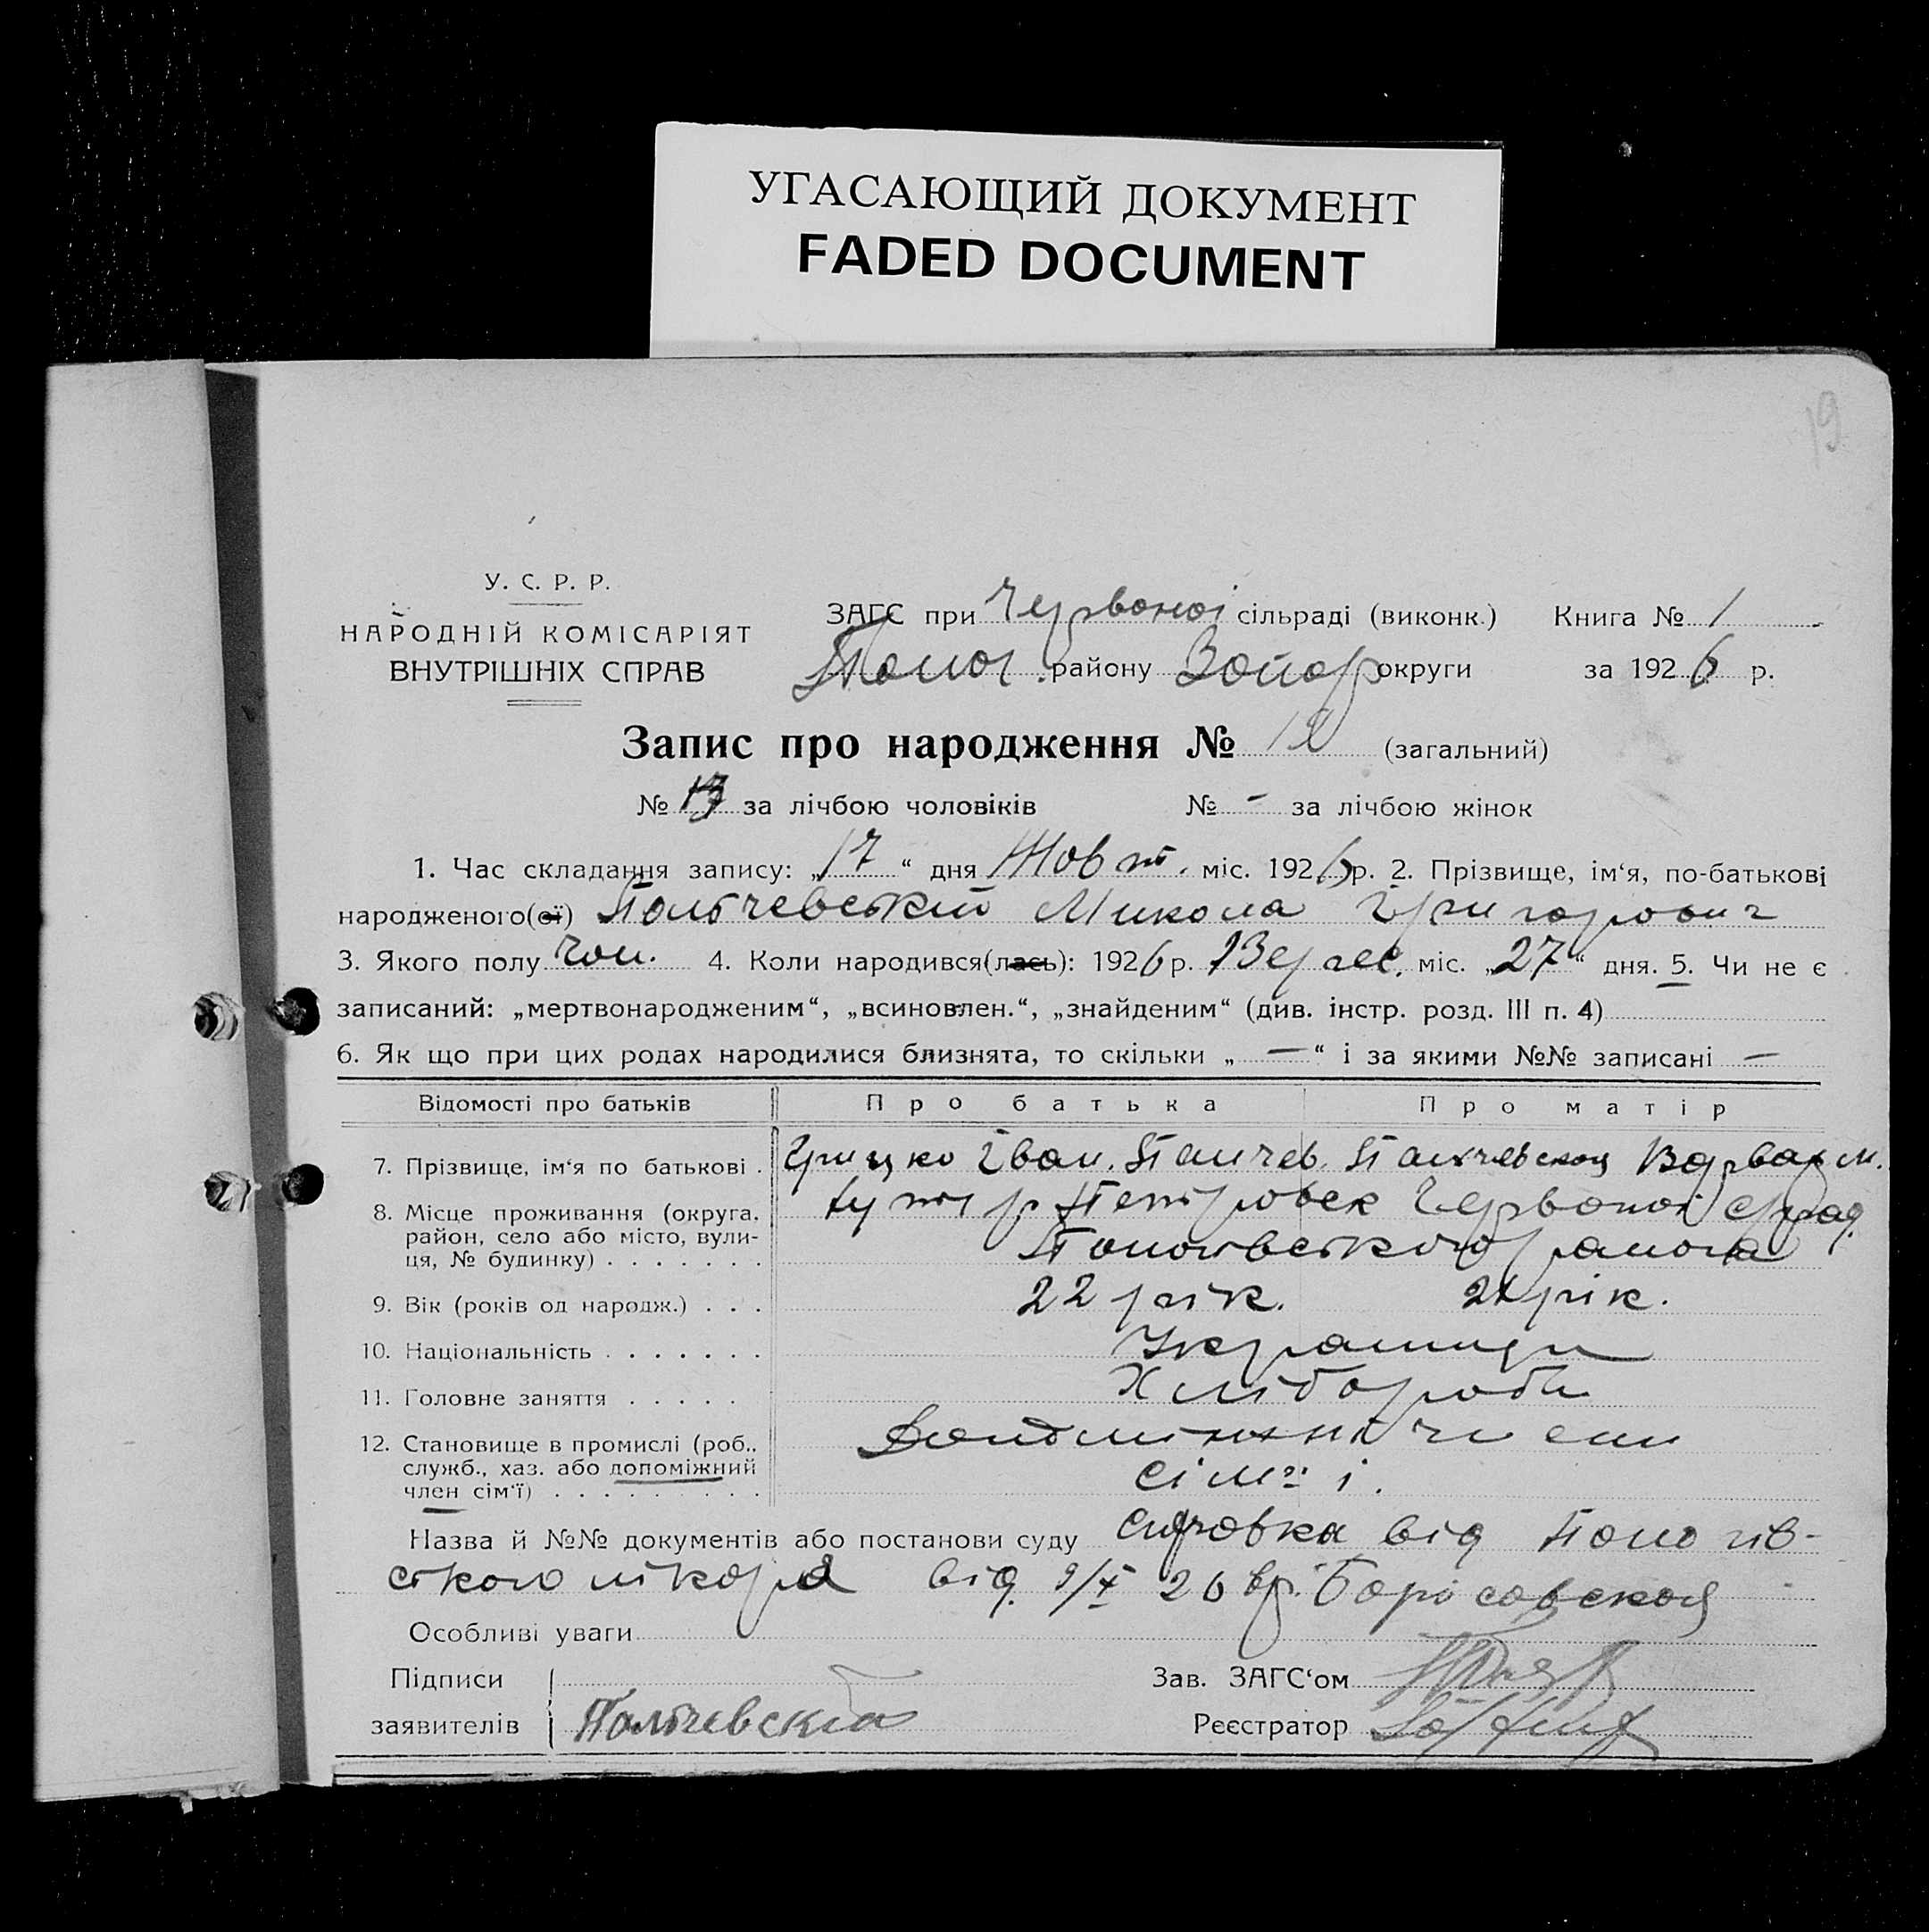 УГАСАЮЩИЙ ДОКУМЕНТ
FADED DOCUMENT
19
У. С. Р. Р.
НАРОДНІЙ КОМІСАРІЯТ
ВНУТРІШНІХ СПРАВ
ЗАГС при Червоної сільраді (виконк.) Книга № 1
Полог. району Запор округи за 1926 р.
Запис про народження № (загальний)
№ за лічбою чоловіків № - за лічбою жінок
1. Час складання запису: „17“ дня Жовт. міс. 1926 р. 2. Прізвище, ім‘я, по-батькові
народженого(ої) Микола Григорович
3. Якого полу Чол. 4. Коли народився(лась): 1926 р. Верес. міс. „27“ дня. 5. Чи не є
записаний: „мертвонародженим“, „всиновлен.“, „знайденим“ (див. інстр. розд. III п. 4)
6. Як що при цих родах народилися близнята, то скільки „ — “ і за якими №№ записані —
Відомості про батьків Про батька Про матір
7. Прізвище, ім‘я по батькові . Грицко Іван. Варвар М.
8. Місце проживання (округа, хутір Червоної
район, село або місто, вули-
ця, № будинку) . . . . . . . района
9. Вік (років од народж.) . . . 22 рік. рік.
10. Національність . . . . . . . Українци
11. Головне заняття . . . . . Хлібороби
12. Становище в промислі (роб., члени
служб., хаз. або допоміжний сім"ї.
член сім‘ї) . . . . . . . . .
Назва й №№ документів або постанови суду справка від Пологів-
ського лікаря від 9/X 26 р. Борісовской
Особливі уваги
Підписи Зав. ЗАГС‘ом
заявителів Реєстратор